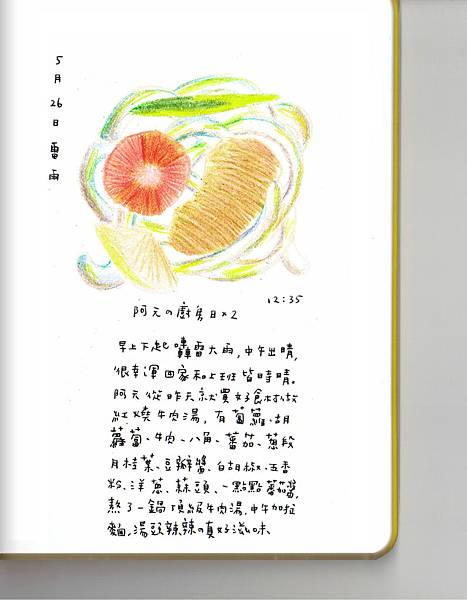 5月26日 雷雨
12:35
阿元の廚房日×2
早上下起轟雷大雨,中午出晴,
很幸運回家和上班皆時晴。
阿元從昨天就買好食材做
紅燒牛肉湯,有蘿蔔、胡
蘿蔔、牛肉、八角、蕃茄、蔥段
月桂葉、豆瓣醬、白胡椒、五香
粉、洋蔥、蒜頭、一點點蕃茄醬,
熬了一鍋頂級牛肉湯,中午加拉
麵,湯頭辣辣の真好滋味、